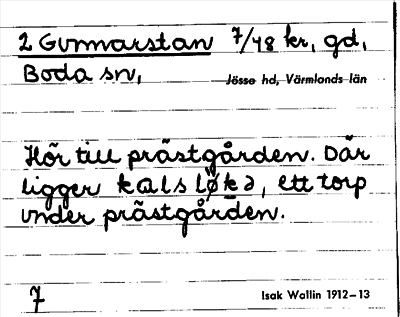 2 Gunnarstan 7/48 kr, gd,
Boda sn,
Jösse hd, Värmlands län
Hör till prästgården. Där
ligger kals løkə, ett torp
under prästgården.
7
Isak Wallin 1912–13